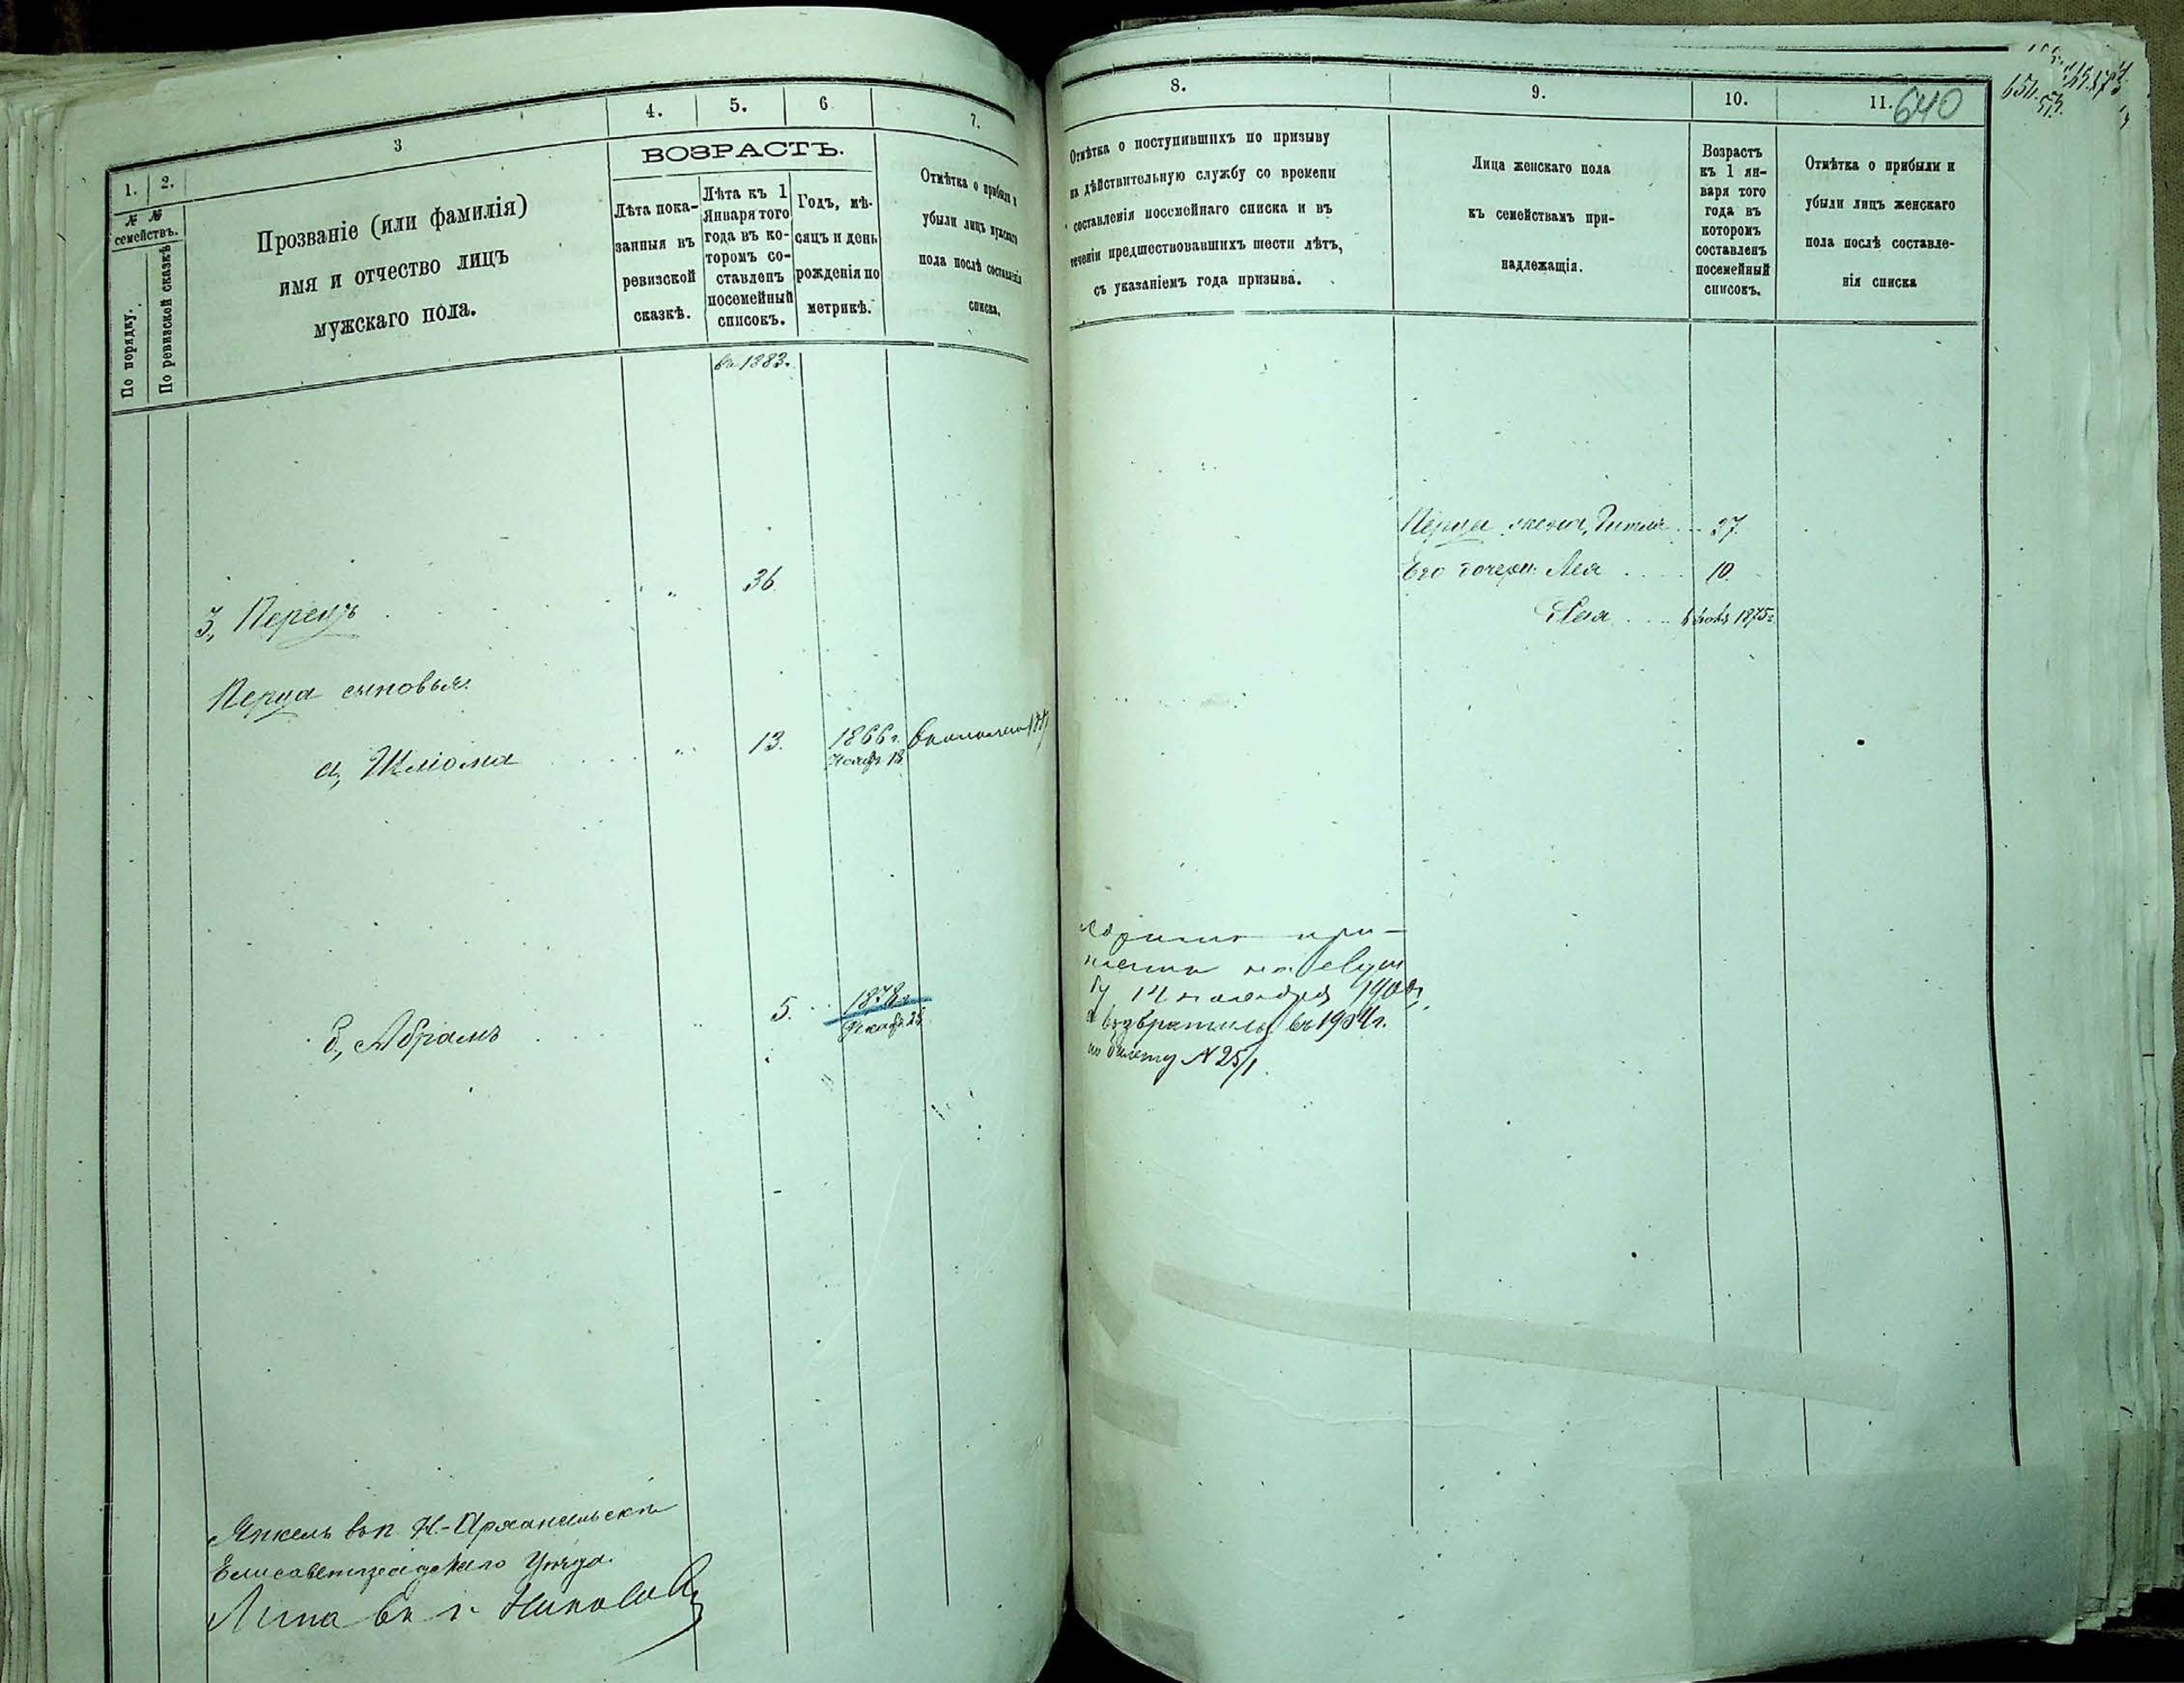 1.
2.
3
4.
5.
6
7.
№ №
семействъ.
По порядку.
По ревизской сказкѣ
Прозваніе (или фамилія)
имя и отчество лицъ
мужскаго пола.
ВОЗРАСТЪ.
Лѣта пока-
занныя въ
ревизской
сказкѣ.
Лѣта къ 1
Января того
года въ ко-
торомъ со-
ставленъ
посемейный
списокъ.
Годъ, мѣ-
сяцъ и день
рожденія по
метрикѣ.
Отмѣтка о прибыли и
убыли лицъ мужскаго
пола послѣ составленія
списка.
въ 1883.
3, Перецъ 36
Перца сыновья:
а, Шліома 13. 1866 г.
18
б, Абрамъ 5. 1878 г.
Декабр. 25
Янкель въ п. Н.-Архангельскѣ
Елисаветградскаго Уѣзда.
Липа въ г. Николаев
8.
9.
10.
11.
640
Отмѣтка о поступившихъ по призыву
на дѣйствительную службу со времени
составленія посемейнаго списка и въ
теченіи предшествовавшихъ шести лѣтъ,
съ указаніемъ года призыва.
Лица женскаго пола
къ семействамъ при-
надлежащія.
Возрастъ
къ 1 ян-
варя того
года въ
которомъ
составленъ
посемейный
списокъ.
Отмѣтка о прибыли и
убыли лицъ женскаго
пола послѣ составле-
нія списка
Перца жена, Гитля 37.
Его дочери: Лея 10.
1875 г.
при-
на служ
бу 14 ноября 1900 г.
возвратился въ 1904 г.
по билету № 25/1.